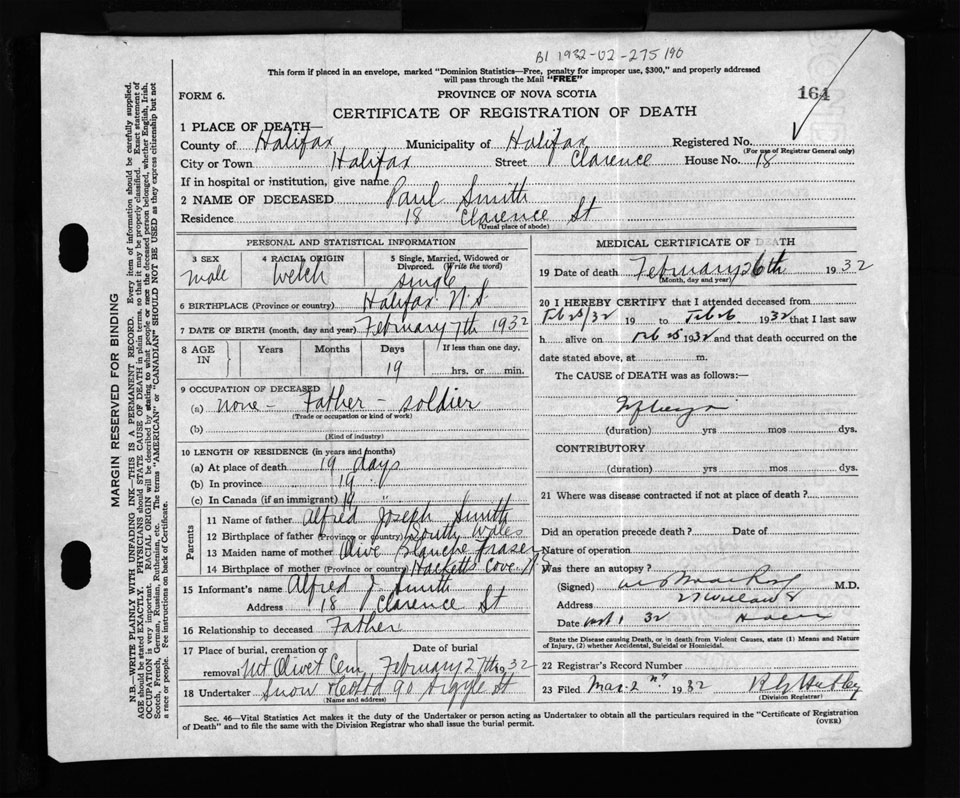 B1 1932-02-275190
This form if placed in an envelope, marked "Dominion Statistics—Free, penalty for improper use, $300," and properly addressed
will pass through the Mail "FREE"
FORM 6.
PROVINCE OF NOVA SCOTIA
164
CERTIFICATE OF REGISTRATION OF DEATH
1 PLACE OF DEATH—
County of Halifax Municipality of Halifax Registered No.
(For use of Registrar General only)
City or Town Halifax Street Clarence House No. 18
If in hospital or institution, give name
2 NAME OF DECEASED Paul Smith
Residence 18 Clarence St
(Usual place of abode)
PERSONAL AND STATISTICAL INFORMATION
3 SEX male
4 RACIAL ORIGIN Welch
5 Single, Married, Widowed or Divorced. (Write the word) Single
6 BIRTHPLACE (Province or country) Halifax N.S.
7 DATE OF BIRTH (month, day and year) February 7th 1932
8 AGE IN Years Months Days 19 If less than one day, hrs. or min.
9 OCCUPATION OF DECEASED
(a) none - Father - soldier
(Trade or occupation or kind of work)
(b)
(Kind of industry)
10 LENGTH OF RESIDENCE (in years and months)
(a) At place of death 19 days
(b) In province 19 "
(c) In Canada (if an immigrant) 19 "
Parents
11 Name of father Alfred Joseph Smith
12 Birthplace of father (Province or country) South Wales
13 Maiden name of mother Olive Blanche Fraser
14 Birthplace of mother (Province or country) Hacketts Cove N.S.
15 Informant's name Alfred J. Smith
Address 18 Clarence St
16 Relationship to deceased Father
17 Place of burial, cremation or removal Mt Olivet Cem
Date of burial February 27th 1932
18 Undertaker Snow & Co Ltd 90 Argyle St
(Name and address)
MEDICAL CERTIFICATE OF DEATH
19 Date of death February 26th 1932
(Month, day and year)
20 I HEREBY CERTIFY that I attended deceased from
Feb 25/32 19 to Feb 26 1932 that I last saw
h alive on Feb 25 1932 and that death occurred on the
date stated above, at m.
The CAUSE of DEATH was as follows:—
(duration) yrs mos dys.
CONTRIBUTORY
(duration) yrs mos dys.
21 Where was disease contracted if not at place of death?
Did an operation precede death? Date of
Nature of operation
Was there an autopsy?
(Signed) M.D.
Address
Date 32
State the Disease causing Death, or in death from Violent Causes, state (1) Means and Nature
of Injury, (2) whether Accidental, Suicidal or Homicidal.
22 Registrar's Record Number
23 Filed Mar-2nd 1932
(Division Registrar)
Sec. 46—Vital Statistics Act makes it the duty of the Undertaker or person acting as Undertaker to obtain all the particulars required in the "Certificate of Registration
of Death" and to file the same with the Division Registrar who shall issue the burial permit.
(OVER)
MARGIN RESERVED FOR BINDING
N.B.—WRITE PLAINLY WITH UNFADING INK—THIS IS A PERMANENT RECORD. Every item of information should be carefully supplied.
AGE should be stated EXACTLY. PHYSICIANS should STATE CAUSE OF DEATH in plain terms, so that it may be properly classified. Exact statement of
OCCUPATION is very important. RACIAL ORIGIN will be described by stating to what people or race the deceased person belonged, whether English, Irish,
Scotch, French, German, Russian, Ruthenian, etc. The terms "AMERICAN" or "CANADIAN" SHOULD NOT BE USED as they express citizenship but not
a race or people. Fee instructions on back of Certificate.